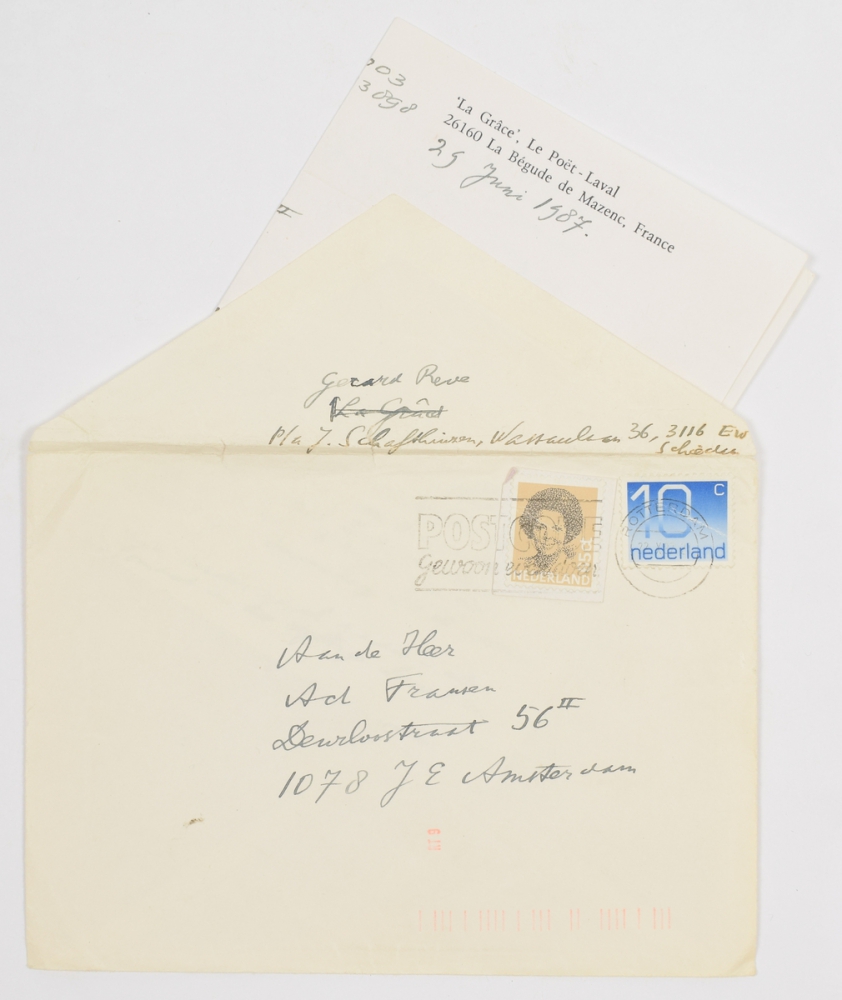 03
3898
'La Grâce', Le Poët-Laval
26160 La Bégude de Mazenc, France
29 Juni 1987.
II
Gerard Reve
La Grâce
P/a J. Schafthuizen, Wassaulaan 36, 3116 EW
Schiedam
POSTCODE
gewoon even doen
NEDERLAND
10 c
nederland
ROTTERDAM
Aan de Heer
Ad Fransen
Deurloostraat 56 II
1078 JE Amsterdam